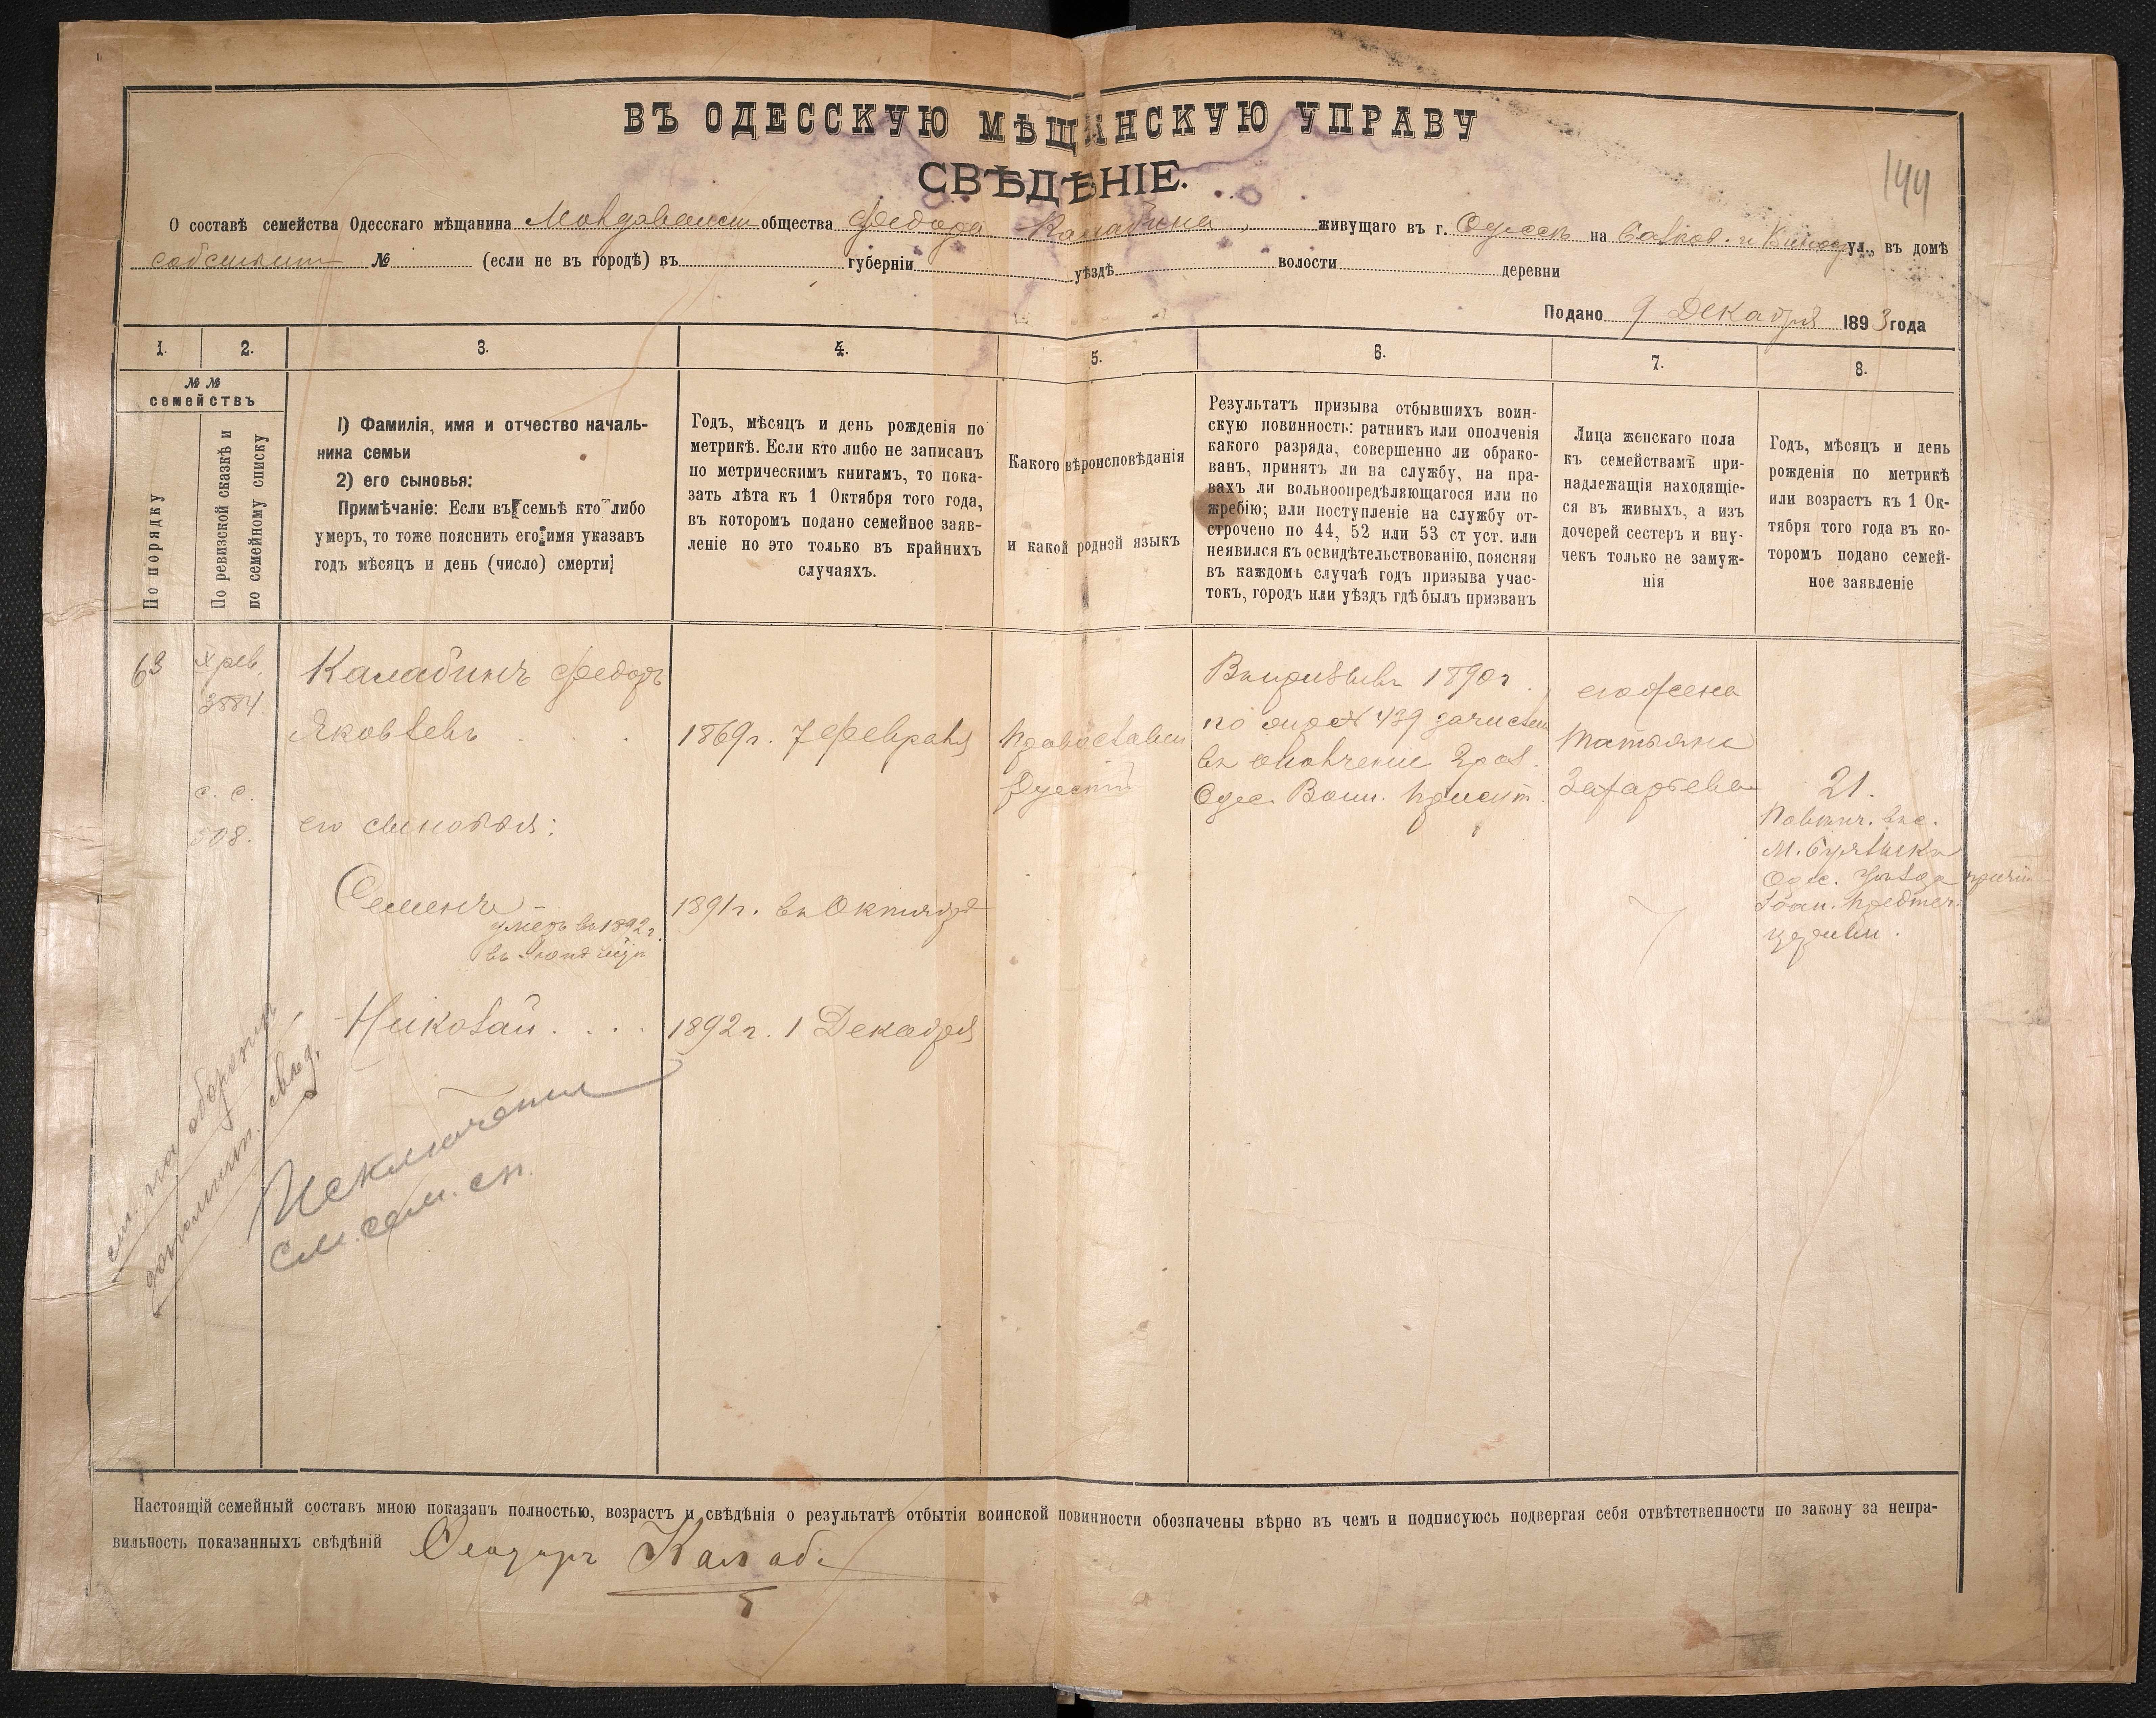 144
ВЪ ОДЕССКУЮ МѢЩАНСКУЮ УПРАВУ
СВѢДѢНІЕ.
О составѣ семейства Одесскаго мѣщанина общества Федора Калабина, живущаго въ г. Одессѣ на ул., въ домѣ
№ (если не въ городѣ) въ губерніи уѣздѣ волости деревни
Подано 9 Декабря 1893 года
1. 2. 3. 4. 5. 6. 7. 8.
№ №
семействъ
По порядку
По ревизской сказкѣ и
по семейному списку
1) Фамилія, имя и отчество началь-
ника семьи
2) его сыновья:
Примѣчаніе: Если въ семьѣ кто либо
умеръ, то тоже пояснить его имя указавъ
годъ мѣсяцъ и день (число) смерти
Годъ, мѣсяцъ и день рожденія по
метрикѣ. Если кто либо не записанъ
по метрическимъ книгамъ, то пока-
зать лѣта къ 1 Октября того года,
въ которомъ подано семейное заяв-
леніе но это только въ крайнихъ
случаяхъ.
Какого вѣроисповѣданія
и какой родной языкъ
Результатъ призыва отбывшихъ воин-
скую повинность: ратникъ или ополченія
какого разряда, совершенно ли обрако-
ванъ, принятъ ли на службу, на пра-
вахъ ли вольноопредѣляющагося или по
жребію; или поступленіе на службу от-
строчено по 44, 52 или 53 ст уст. или
неявился къ освидѣтельствованію, поясняя
въ каждомь случаѣ годъ призыва учас-
токъ, городъ или уѣздъ гдѣ былъ призванъ
Лица женскаго пола
къ семействамъ при-
надлежащія находящіе-
ся въ живыхъ, а изъ
дочерей сестеръ и вну-
чекъ только не замуж-
нія
Годъ, мѣсяцъ и день
рожденія по метрикѣ
или возрастъ къ 1 Ок-
тября того года въ ко-
торомъ подано семей-
ное заявленіе
63
X рев.
3884.
с. с.
508.
Калабинъ Федоръ
Яковлевъ
его сыновья:
Семенъ
умеръ въ 1892 г.
Николай
1869 г. 7 Февраля
1891 г. въ Октябрѣ
1892 г. 1 Декабря
1890 г.
по № 439 зачислен
въ ополченіе 2 раз.
Одес. Воин. Присут.
его жена
Татьяна
Захарьева
21.
Одес. уѣзда
Іоан. Предтеч.
церкви.
см. на оборотѣ
дополнит. свѣд.
Исключенія
см. сем. сп.
Настоящій семейный составъ мною показанъ полностью, возрастъ и свѣдѣнія о результатѣ отбытія воинской повинности обозначены вѣрно въ чемъ и подписуюсь подвергая себя отвѣтственности по закону за непра-
вильность показанныхъ свѣдѣній